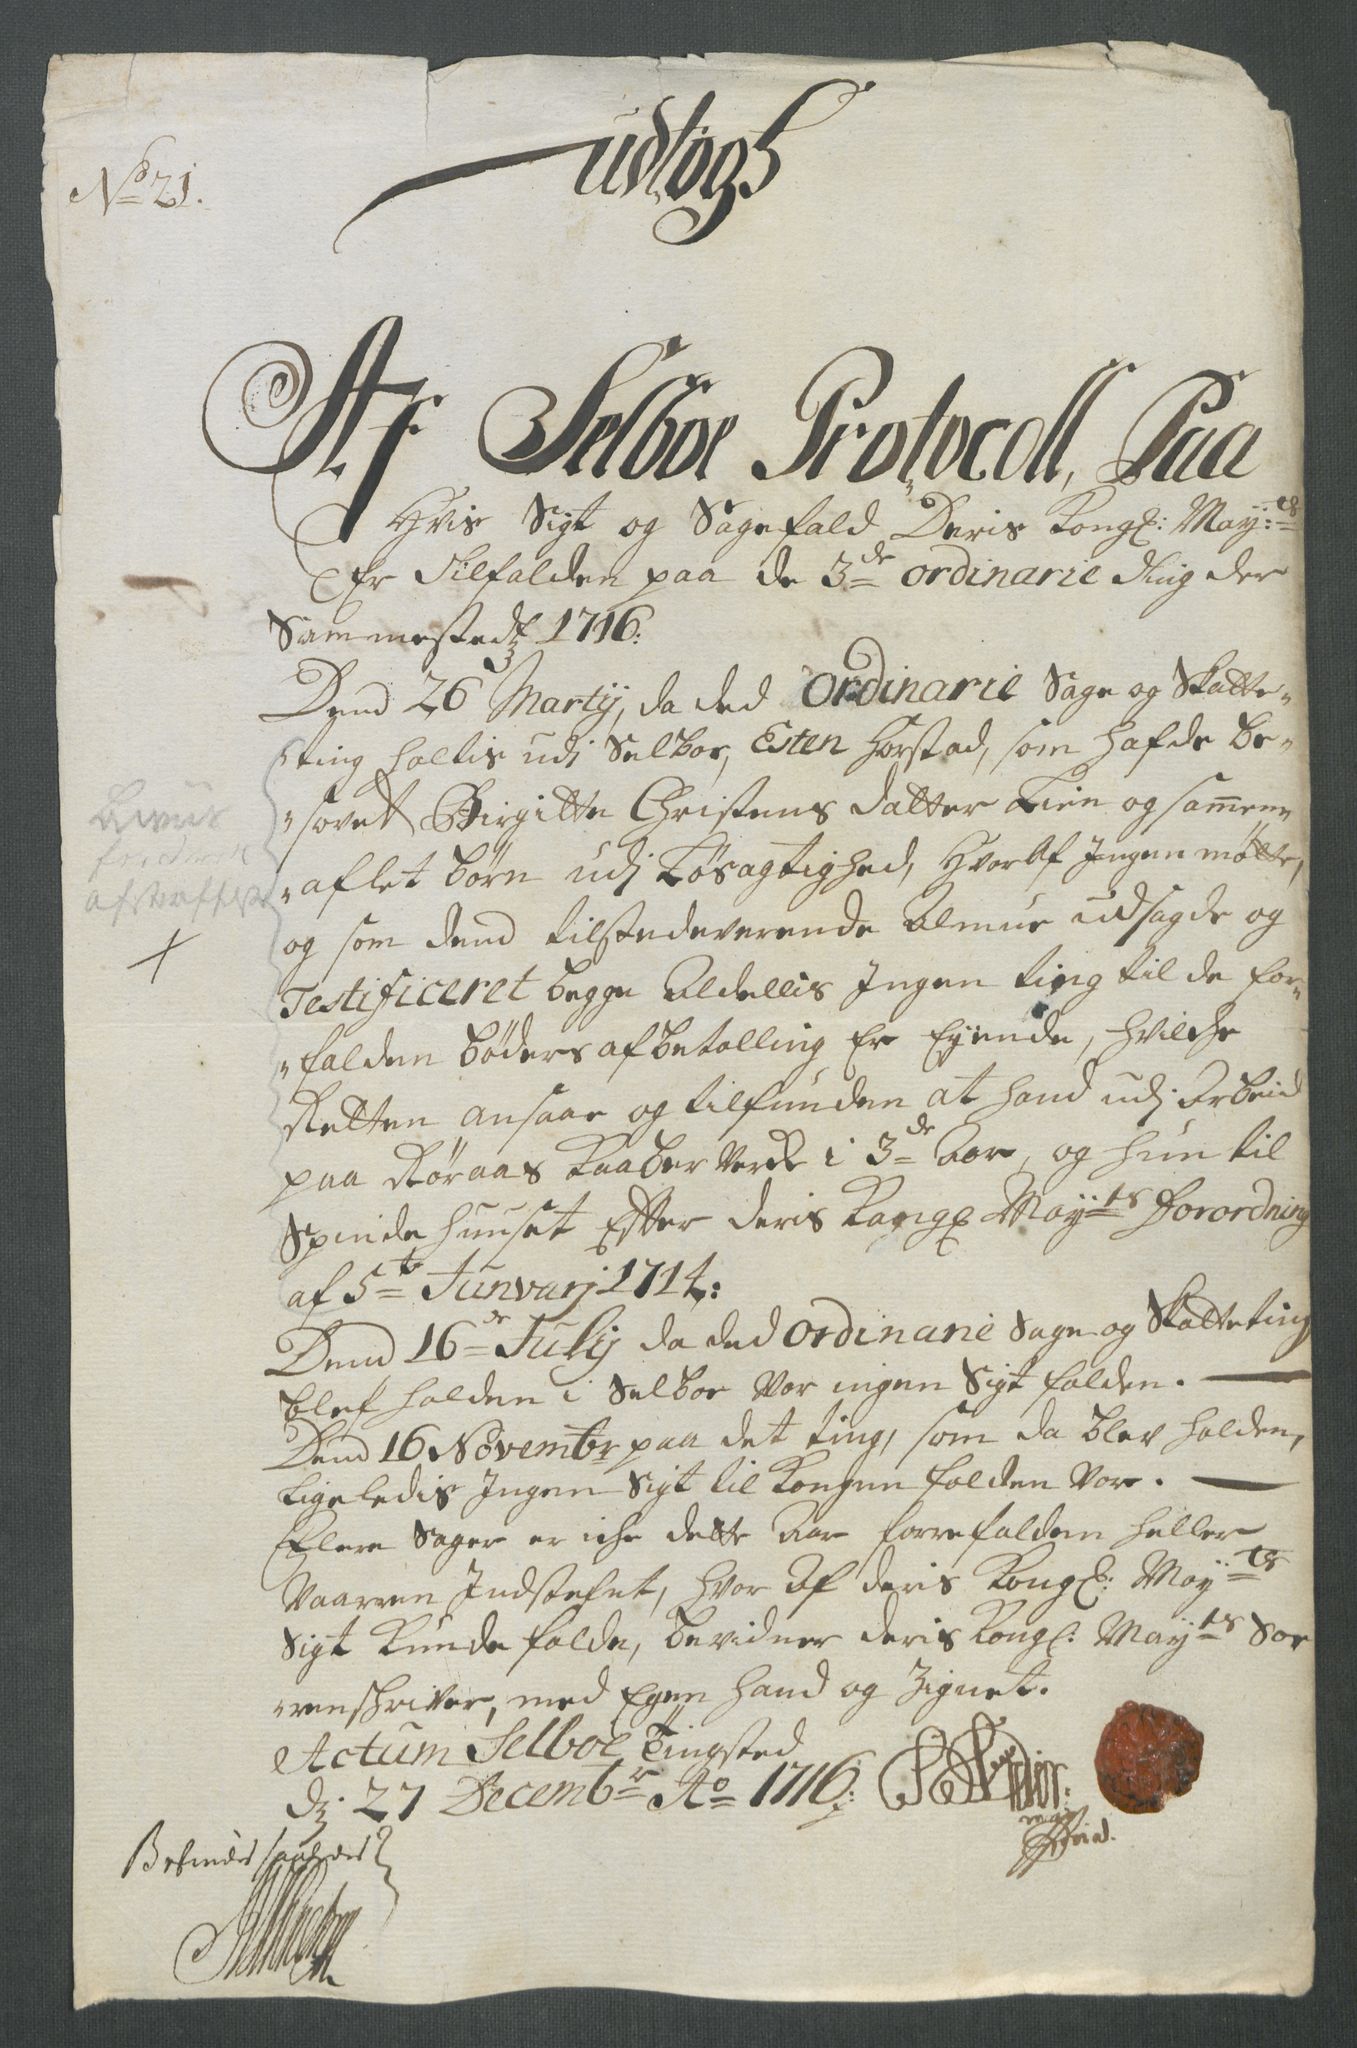 No 21.
udtog
Af Selboe Protocoll, Paa
Hvis Sigt og Sagefald Deris Kongl: May:ts
Er Tilfalden paa de 3de ordinarie Ting der
Sammestedz 1716:
Dend 26 Martij, da ded Ordinarie Sage og Skatte-
ting holtis udi Selboe, Esten Horstad, som hafde be-
sovet Birgitte Christens datter Lien og sammen-
aflet børn udi Løsagtighed, Hvoraf Jngen møtte,
og som dend tilstedeverende Almue udsagde og
Testificeret begge Aldellis Jngen ting til de for-
falden bøders afbetalling Er Eyende, hvilche
Retten ansaae og tilfunden at hand udj Arbeid
paa Røraas Kaaber Verck i 3de Aar, og hun til
Spinde huuset Efter deris Kongl May:ts Forordning
af 5te Junvarj 1714:
Dend 16de Julij da ded Ordinarie Sage og Skatteting
blef holden i Selboe Var ingen Sigt falden.
Dend 16 Novembr paa det ting, som da blev holden,
Ligeledis Jngen Sigt til Kongen falden Var.
Flere Sager er iche dette Aar forrefalden heller
Vaarren Jndstefnt, hvor Af deris Kongl: May:ts
Sigt Kunde falde, bevidner deris Kongl: May:ts Sor
renschriver, med Egen Hand og Zignet.
Actum Selboe Tingsted
dz. 27 Decembr Ao 1716:
Befindes saaledes